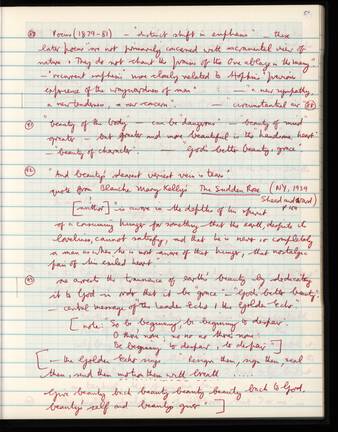 Poems (1879-81) - "distinct shift in emphasis" - these
later poems "are not primarily concerned with sacramental view of
nature. They do not chant the praises of the One ablaze in the many"
- "recurrent emphasis more closely related to Hopkins' previous
experience of the waywardness of man" - "a new sympathy,
a new tenderness, a new concern". - circumstantial
"beauty of the body" - can be "dangerous" - beauty of mind
greater - but greater and more beautiful is the handsome heart
- "beauty of character". - "God's better beauty, grace"
42
"And beauty's dearest veriest vein is tears"
quote from Blanche Mary Kelly's The Sudden Rose (NY, 1939
Sheed and Ward)
[author] is aware in the depths of his spirit
of a consuming hunger for something that the earth, despite its
loveliness, cannot satisfy, and that he is never so completely
a man as when he is most aware of that hunger, that nostalgic
pain of his exiled heart.
43
one arrests the transience of earth's beauty by dedicating
it to God in order that it be "grace" - "God's better beauty."
- central message of the Leaden Echo & the Golden Echo.
[note: So be beginning, be beginning to despair.
O there's none; no no no there's none:
Be beginning to despair, to despair"]
[- the Golden Echo sings resign them, sign them, seal
them, send them, motion them with breath .....
Give beauty back beauty beauty beauty back to God,
beauty's self and beauty's giver "]